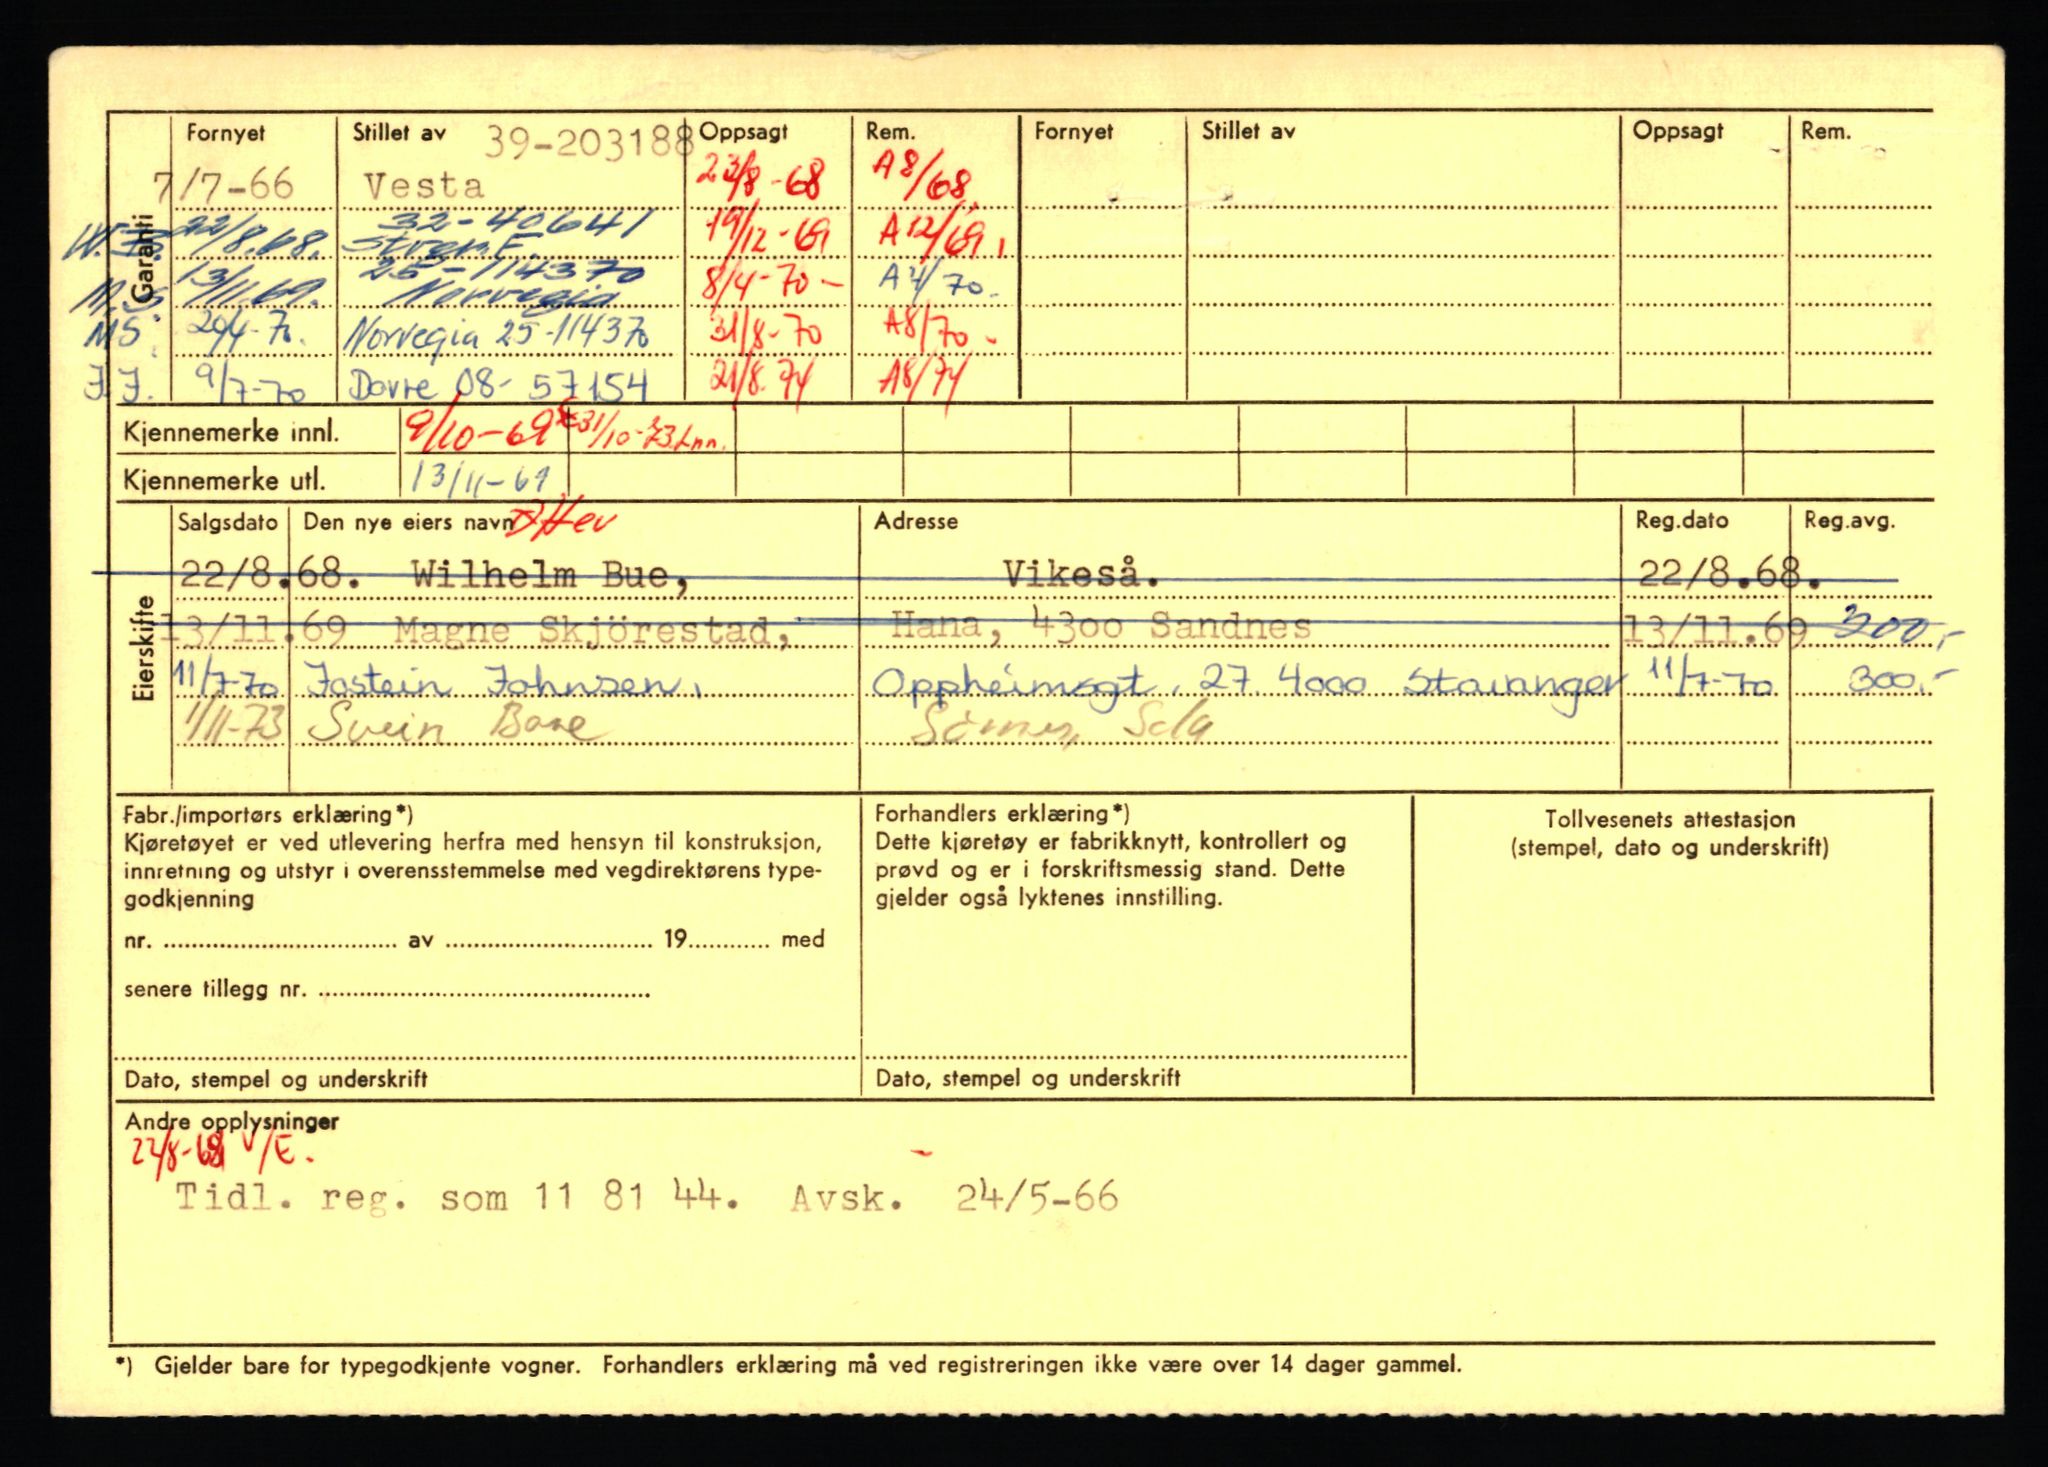 Fornyet Stillet av 39-203188 Oppsagt Rem. Fornyet Stillet av Oppsagt Rem.
Garanti
7/7-66 Vesta 23/8-68 A8/68
22/8.68. 32-40641 19/12-69 A12/69
13/11.69. 25-114370 Norvegia 8/4-70- A4/70-
MS. 20/4-70. Norvegia 25-114370 31/8-70 A8/70-
J.J. 9/7-70 Dovre 08-57154 21/8.74 A8/74
Kjennemerke innl. 9/10-69 31/10-73
Kjennemerke utl. 13/11-69
Eierskifte
Salgsdato Den nye eiers navn Adresse Reg.dato Reg.avg.
22/8.68. Wilhelm Bue, Vikeså. 22/8.68.
13/11.69 Magne Skjörestad, Hana, 4300 Sandnes 13/11.69 300,-
11/7-70 Jostein Johnsen. Oppheimsgt. 27. 4000 Stavanger 11/7-70 300.-
1/11-73 Svein Bore
Fabr./importørs erklæring*)
Kjøretøyet er ved utlevering herfra med hensyn til konstruksjon,
innretning og utstyr i overensstemmelse med vegdirektørens type-
godkjenning
nr. av 19 med
senere tillegg nr.
Dato, stempel og underskrift
Forhandlers erklæring*)
Dette kjøretøy er fabrikknytt, kontrollert og
prøvd og er i forskriftsmessig stand. Dette
gjelder også lyktenes innstilling.
Dato, stempel og underskrift
Tollvesenets attestasjon
(stempel, dato og underskrift)
Andre opplysninger
22/8-68 V/E.
Tidl. reg. som 11 81 44. Avsk. 24/5-66
*) Gjelder bare for typegodkjente vogner. Forhandlers erklæring må ved registreringen ikke være over 14 dager gammel.